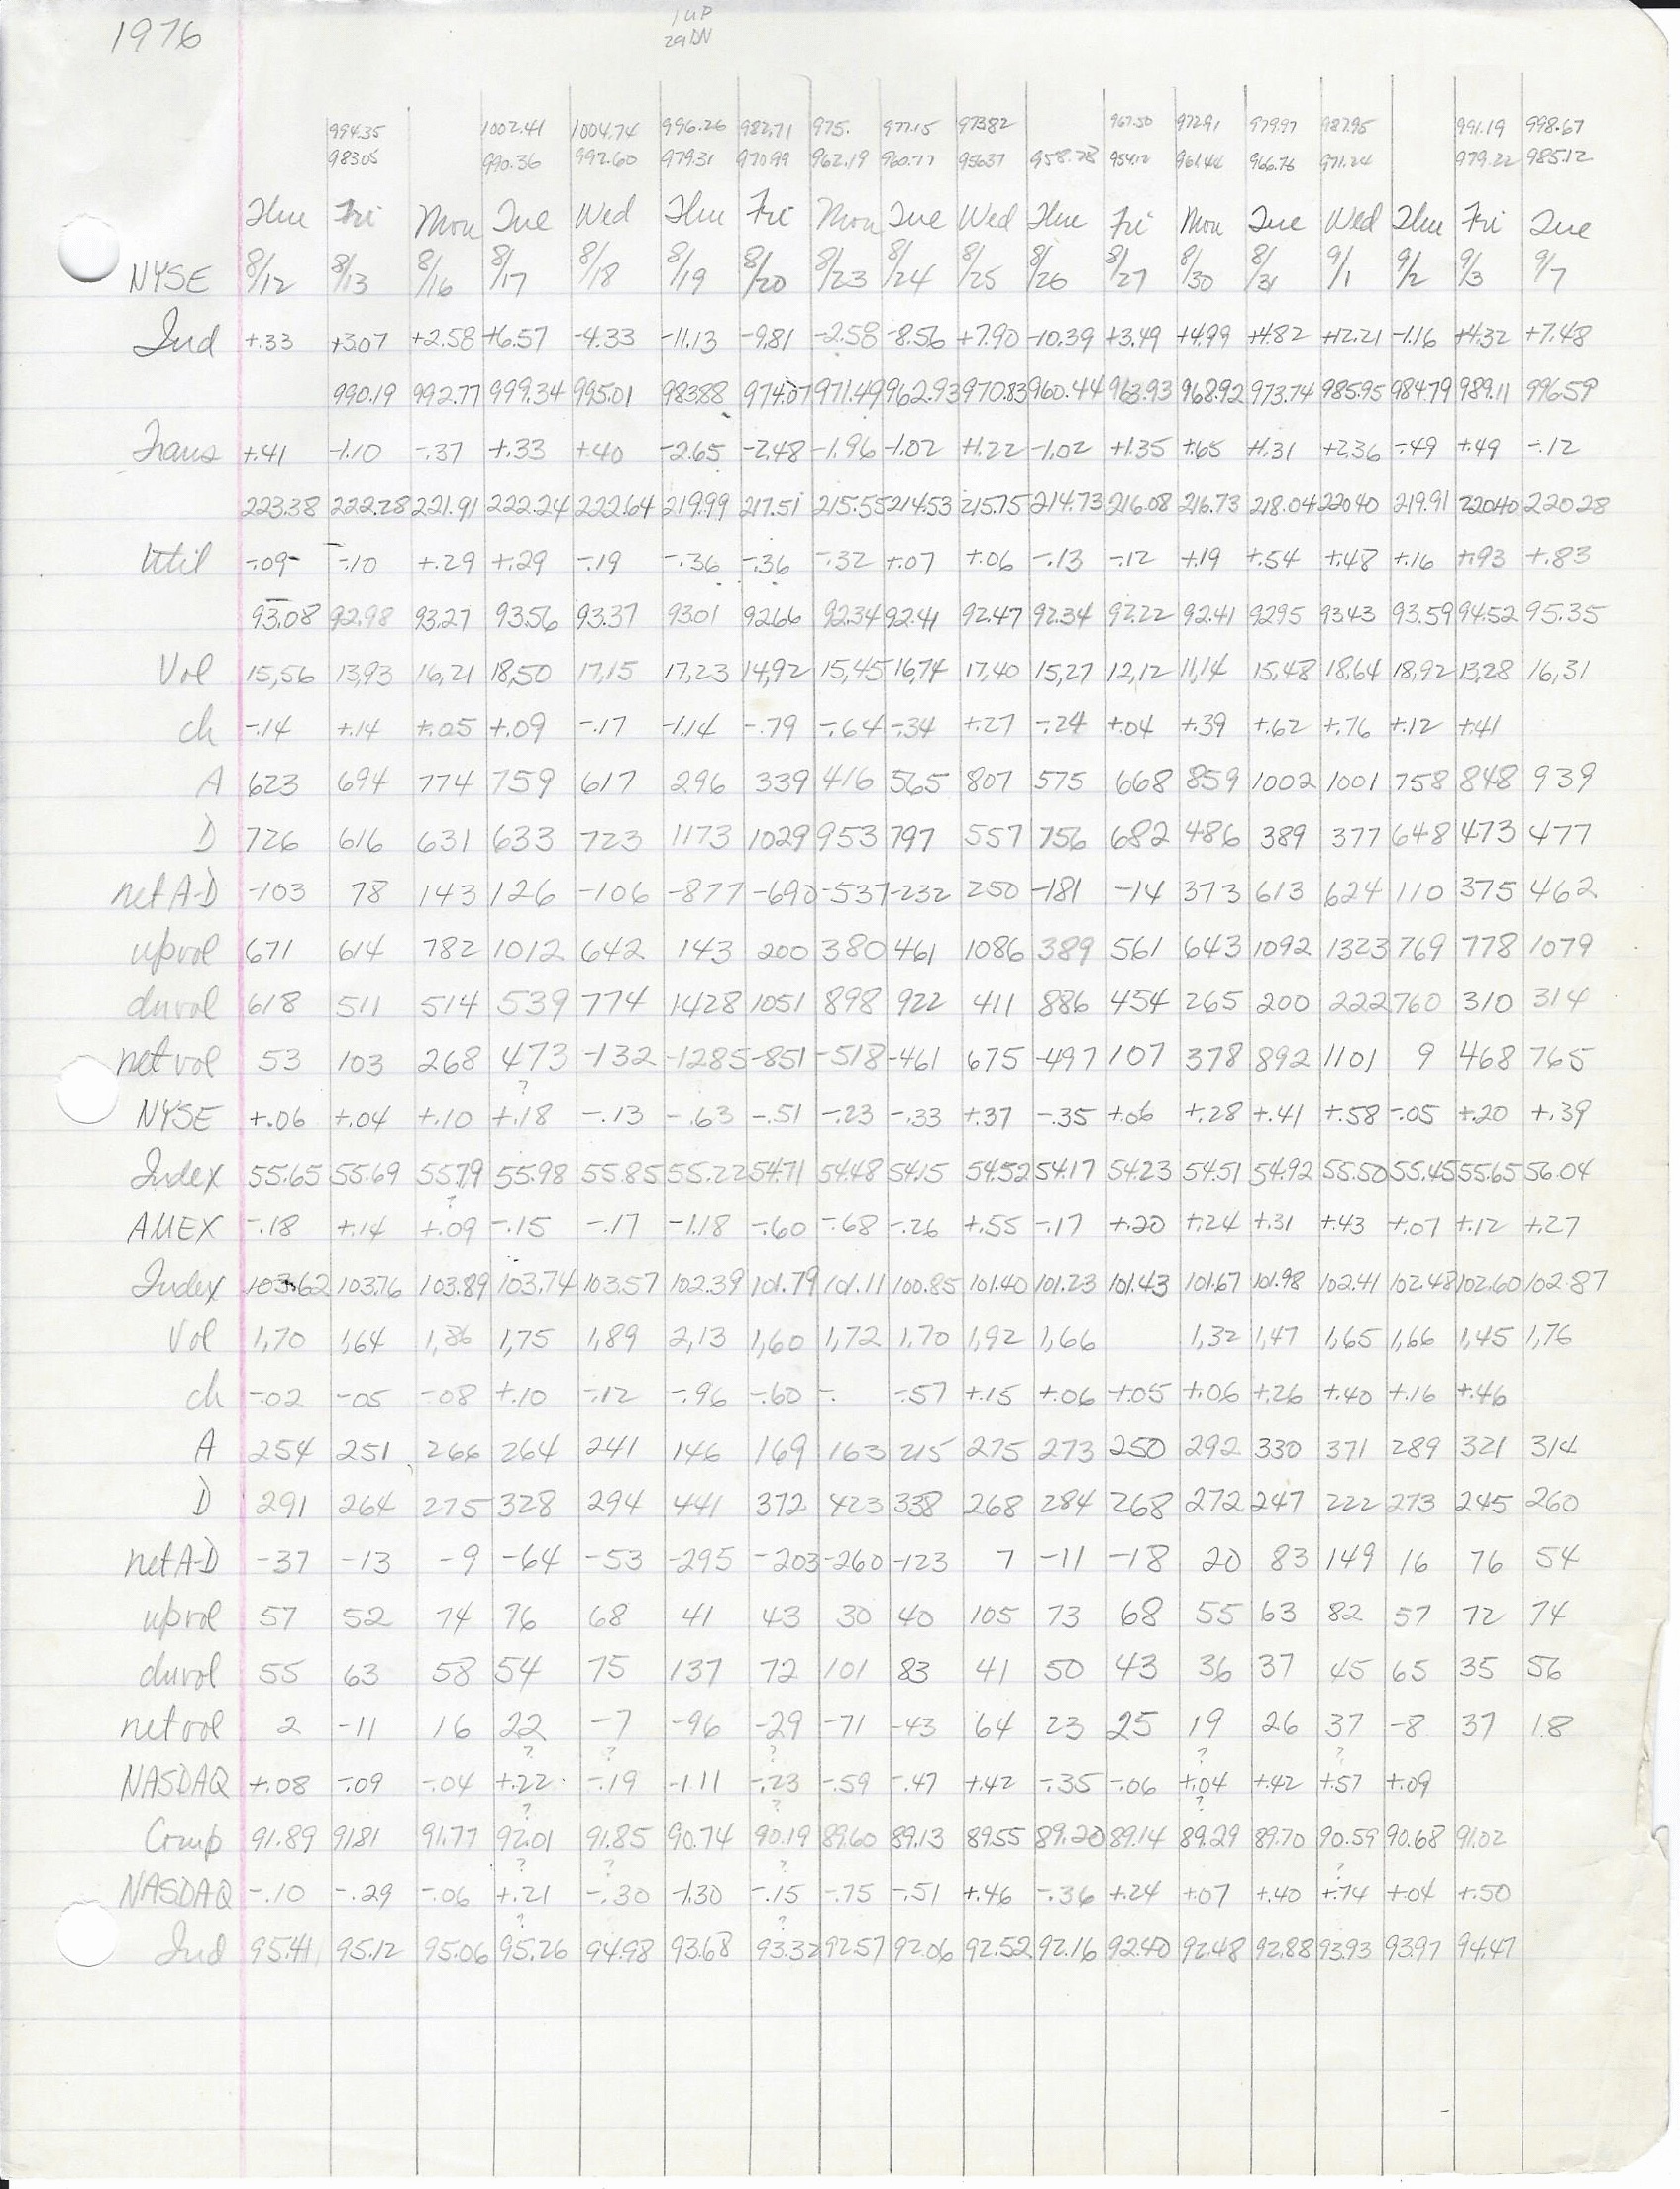 1976
1 UP
29 DN
994.35 1002.41 1004.74 996.26 982.71 975. 977.15 973.82 967.50 972.91 979.97 987.95 991.19 998.67
983.05 990.36 992.60 979.31 970.99 962.19 960.77 956.37 958.28 954.12 961.44 966.76 971.24 979.22 985.12
Thu Fri Mon Tue Wed Thu Fri Mon Tue Wed Thu Fri Mon Tue Wed Thu Fri Tue
NYSE 8/12 8/13 8/16 8/17 8/18 8/19 8/20 8/23 8/24 8/25 8/26 8/27 8/30 8/31 9/1 9/2 9/3 9/7
Ind +.33 +3.07 +2.58 +6.57 -4.33 -11.13 -9.81 -2.58 -8.56 +7.90 -10.39 +3.49 +4.99 +4.82 +12.21 -1.16 +4.32 +7.48
990.19 992.77 999.34 995.01 983.88 974.07 971.49 962.93 970.83 960.44 963.93 968.92 973.74 985.95 984.79 989.11 996.59
Trans +.41 -1.10 -.37 +.33 +.40 -2.65 -2.48 -1.96 -1.02 +1.22 -1.02 +1.35 +.65 +1.31 +2.36 -.49 +.49 -.12
223.38 222.28 221.91 222.24 222.64 219.99 217.51 215.55 214.53 215.75 214.73 216.08 216.73 218.04 220.40 219.91 220.40 220.28
Util -.09 -.10 +.29 +.29 -.19 -.36 -.36 -.32 +.07 +.06 -.13 -.12 +.19 +.54 +.48 +.16 +.93 +.83
93.08 92.98 93.27 93.56 93.37 93.01 92.66 92.34 92.41 92.47 92.34 92.22 92.41 92.95 93.43 93.59 94.52 95.35
Vol 15,56 13,93 16,21 18,50 17,15 17,23 14,92 15,45 16,74 17,40 15,27 12,12 11,14 15,48 18,64 18,92 13,28 16,31
ch -.14 +.14 +.05 +.09 -.17 -1.14 -.79 -.64 -.34 +.27 -.24 +.04 +.39 +.62 +.76 +.12 +.41
A 623 694 774 759 617 296 339 416 565 807 575 668 859 1002 1001 758 848 939
D 726 616 631 633 723 1173 1029 953 797 557 756 682 486 389 377 648 473 477
net A-D -103 78 143 126 -106 -877 -690 -537 -232 250 -181 -14 373 613 624 110 375 462
upvol 671 614 782 1012 642 143 200 380 461 1086 389 561 643 1092 1323 769 778 1079
dnvol 618 511 514 539 774 1428 1051 898 922 411 886 454 265 200 222 760 310 314
net vol 53 103 268 473 -132 -1285 -851 -518 -461 675 -497 107 378 892 1101 9 468 765
?
NYSE +.06 +.04 +.10 +.18 -.13 -.63 -.51 -.23 -.33 +.37 -.35 +.06 +.28 +.41 +.58 -.05 +.20 +.39
Index 55.65 55.69 55.79 55.98 55.85 55.22 54.71 54.48 54.15 54.52 54.17 54.23 54.51 54.92 55.50 55.45 55.65 56.04
?
AMEX -.18 +.14 +.09 -.15 -.17 -1.18 -.60 -.68 -.26 +.55 -.17 +.20 +.24 +.31 +.43 +.07 +.12 +.27
Index 103.62 103.76 103.89 103.74 103.57 102.39 101.79 101.11 100.85 101.40 101.23 101.43 101.67 101.98 102.41 102.48 102.60 102.87
Vol 1,70 1,64 1,86 1,75 1,89 2,13 1,60 1,72 1,70 1,92 1,66 1,32 1,47 1,65 1,66 1,45 1,76
ch -.02 -.05 -.08 +.10 -.12 -.96 -.60 -. -.57 +.15 +.06 +.05 +.06 +.26 +.40 +.16 +.46
A 254 251 266 264 241 146 169 163 215 275 273 250 292 330 371 289 321 314
D 291 264 275 328 294 441 372 423 338 268 284 268 272 247 222 273 245 260
net A-D -37 -13 -9 -64 -53 -295 -203 -260 -123 7 -11 -18 20 83 149 16 76 54
upvol 57 52 74 76 68 41 43 30 40 105 73 68 55 63 82 57 72 74
dnvol 55 63 58 54 75 137 72 101 83 41 50 43 36 37 45 65 35 56
net vol 2 -11 16 22 -7 -96 -29 -71 -43 64 23 25 19 26 37 -8 37 18
? ? ? ? ?
NASDAQ +.08 -.09 -.04 +.22 -.19 -1.11 -.23 -.59 -.47 +.42 -.35 -.06 +.04 +.42 +.57 +.09
? ? ?
Comp 91.89 91.81 91.77 92.01 91.85 90.74 90.19 89.60 89.13 89.55 89.20 89.14 89.29 89.70 90.59 90.68 91.02
? ? ? ?
NASDAQ -.10 -.29 -.06 +.21 -.30 -1.30 -.15 -.75 -.51 +.46 -.36 +.24 +.07 +.40 +.74 +.04 +.50
? ?
Ind 95.41 95.12 95.06 95.26 94.98 93.68 93.32 92.57 92.06 92.52 92.16 92.40 92.48 92.88 93.93 93.97 94.47